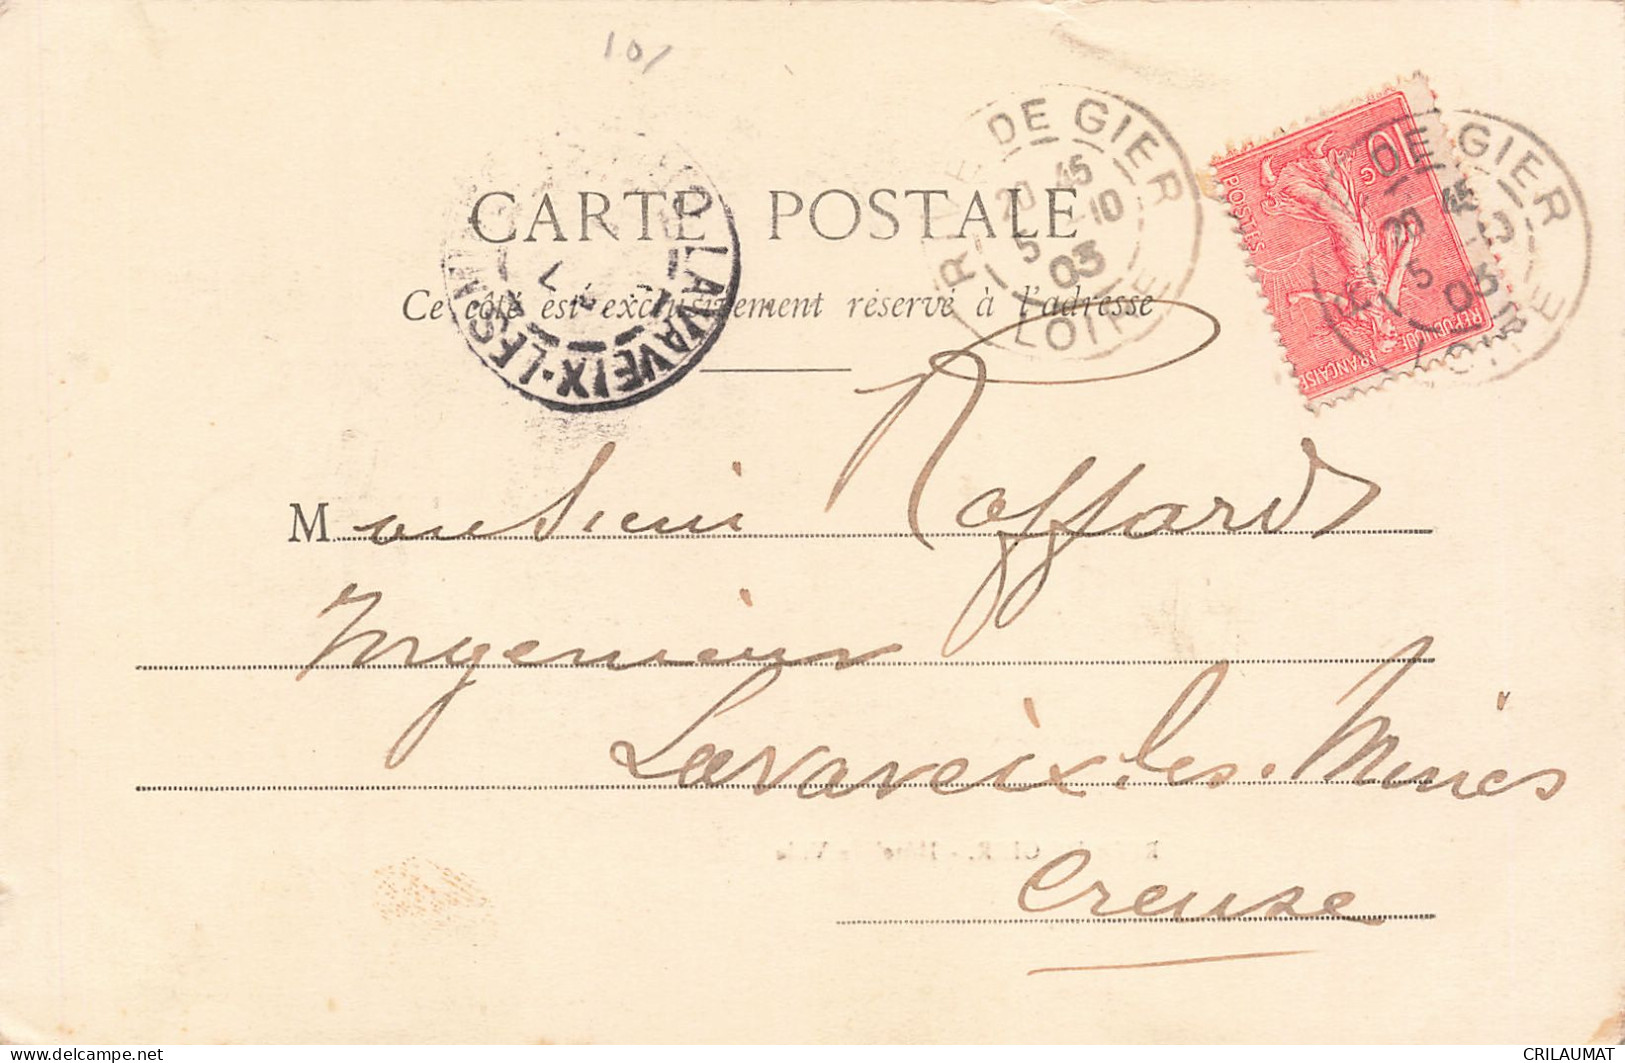 10/
CARTE POSTALE
Ce côté est exclusivement réservé à l'adresse
RIVE DE GIER
20 45
5 -10
03
LOIRE
10
POSTES
REPUBLIQUE FRANÇAISE
DE GIER
20 45
5 -10
03
LOIRE
LAVAVEIX-LES-M
Monsieur Raffard
Ingenieur
Lavaveix-les-Mines
Creuse
CRILAUMAT